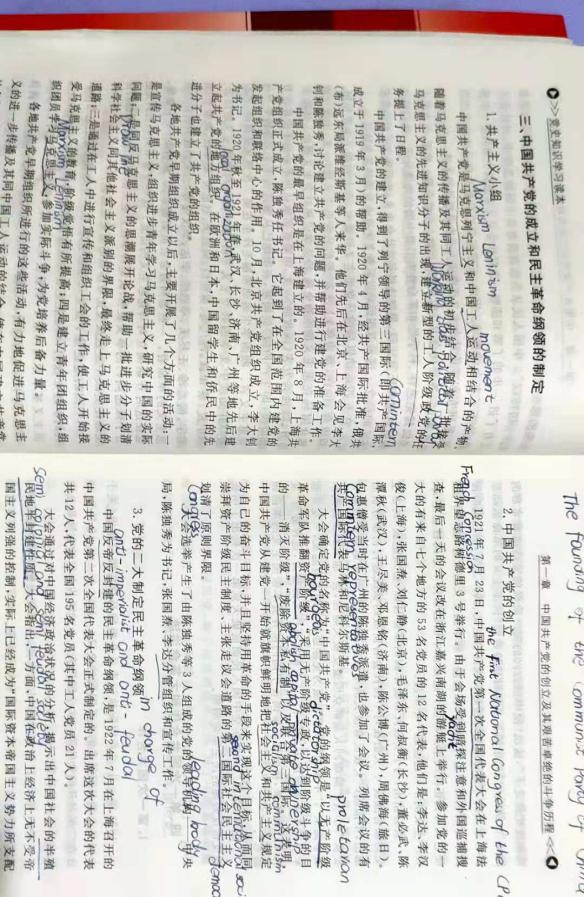 >>党史知识学习读本
三、中国共产党的成立和民主革命纲领的制定
1. 共产主义小组
Marxism Leninism movement
中国共产党是马克思列宁主义和中国工人运动相结合的产物。
随着马克思主义的传播及其同工人运动的初步结合,随着一批接受
马克思主义的先进知识分子的出现,建立新型的工人阶级政党的任
务提上了日程。
Comintern
中国共产党的建立,得到了列宁领导的第三国际(即共产国际,
成立于1919年3月)的帮助。1920年4月,经共产国际批准,俄共
(布)远东局派维经斯基等人来华。他们先后在北京、上海会见李大
钊和陈独秀,讨论建立共产党的问题,并帮助进行建党的准备工作。
中国共产党的最早组织是在上海建立的。1920年8月,上海共
产党组织正式成立,陈独秀任书记。它起到了在全国范围内建党的
发起组和联络中心的作用。10月,北京共产党组织成立,李大钊
为书记。1920年秋至1921年春,武汉、长沙、济南、广州等地先后建
立起共产党的地方组织。在欧洲和日本,中国留学生和侨民中的先
local organizations
进分子也建立了共产党的组织。
各地共产党早期组织成立以后,主要开展了几个方面的活动:一
是宣传马克思主义,组织进步青年学习马克思主义,研究中国的实际
问题;二是同反马克思主义的思潮展开论战,帮助一批进步分子划清
科学社会主义同其他社会主义派别的界限,最终走上马克思主义的
道路;三是通过在工人中进行宣传和组织工会的工作,使工人开始接
受马克思主义的教育,阶级觉悟有所提高;四是建立青年团组织,组
Marxism Leninism
织团员学习马克思主义,参加实际斗争,为党培养后备力量。
各地共产党早期组织所进行的这些活动,有力地促进马克思主
义的进一步传播及其同中国工人运动的结合
The founding of the Communist Party of China
第一章 中国共产党的创立及其艰苦卓绝的斗争历程<<
2. 中国共产党的创立
the First National Congress of the CP
1921年7月23日,中国共产党第一次全国代表大会在上海法
French Concession
租界望志路树德里3号举行。由于会场受到暗探注意和外国巡捕搜
yacht
查,最后一天的会议改在浙江嘉兴南湖的游艇上举行。参加党的一
大的有来自七个地方的53名党员的12名代表,他们是:李达、李汉
俊(上海),张国焘、刘仁静(北京),毛泽东、何叔衡(长沙),董必武、陈
潭秋(武汉),王尽美、邓恩铭(济南),陈公博(广州),周佛海(旅日)。
包惠僧受当时在广州的陈独秀派遣,也参加了会议。列席会议的有
Comintern representative
共产国际代表马林和尼科尔斯基。
proletarian
大会确定党的名称为“中国共产党”。党的纲领是“以无产阶级
bourgeois dictatorship
革命军队推翻资产阶级”,“采用无产阶级专政,以达到阶级斗争的目
的——消灭阶级”,“废除资本私有制”,以及联合第三国际。这表明,
abolish capital private ownership
中国共产党从建党一开始就旗帜鲜明地把社会主义和共产主义规定
socialism communism
为自己的奋斗目标,并且坚持用革命的手段来实现这个目标,从而同
崇拜资产阶级民主制度、主张走议会道路的第二国际社会民主主义
second international social democ
划清了原则界限。
Congress leading body
大会选举产生了由陈独秀等3人组成的党的领导机构——中央
局,陈独秀为书记,张国焘、李达分管组织和宣传工作。
in charge of
3. 党的二大制定民主革命纲领
anti-imperialist and anti-feudal
中国反帝反封建的民主革命纲领,是1922年7月在上海召开的
中国共产党第二次全国代表大会正式制定的。出席这次大会的代表
共12人,代表全国195名党员(其中工人党员21人)。
大会通过对中国经济政治状况的分析,揭示出中国社会的半殖
Semi colonial and semi feudal society
民地半封建性质。大会指出:一方面,中国在政治上经济上无不受帝
国主义列强的控制,实际上已经成为“国际资本帝国主义势力所支配